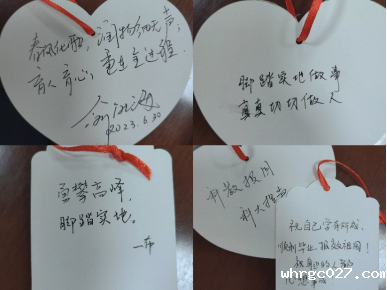 春风化雨，润物细无声；
育人育心，重在全过程。
2023.6.30
脚踏实地做事
真真切切做人
勇攀高峰，
脚踏实地。
科教报国
祝自己学有所成，
顺利毕业，报效祖国！
whrgc027.com